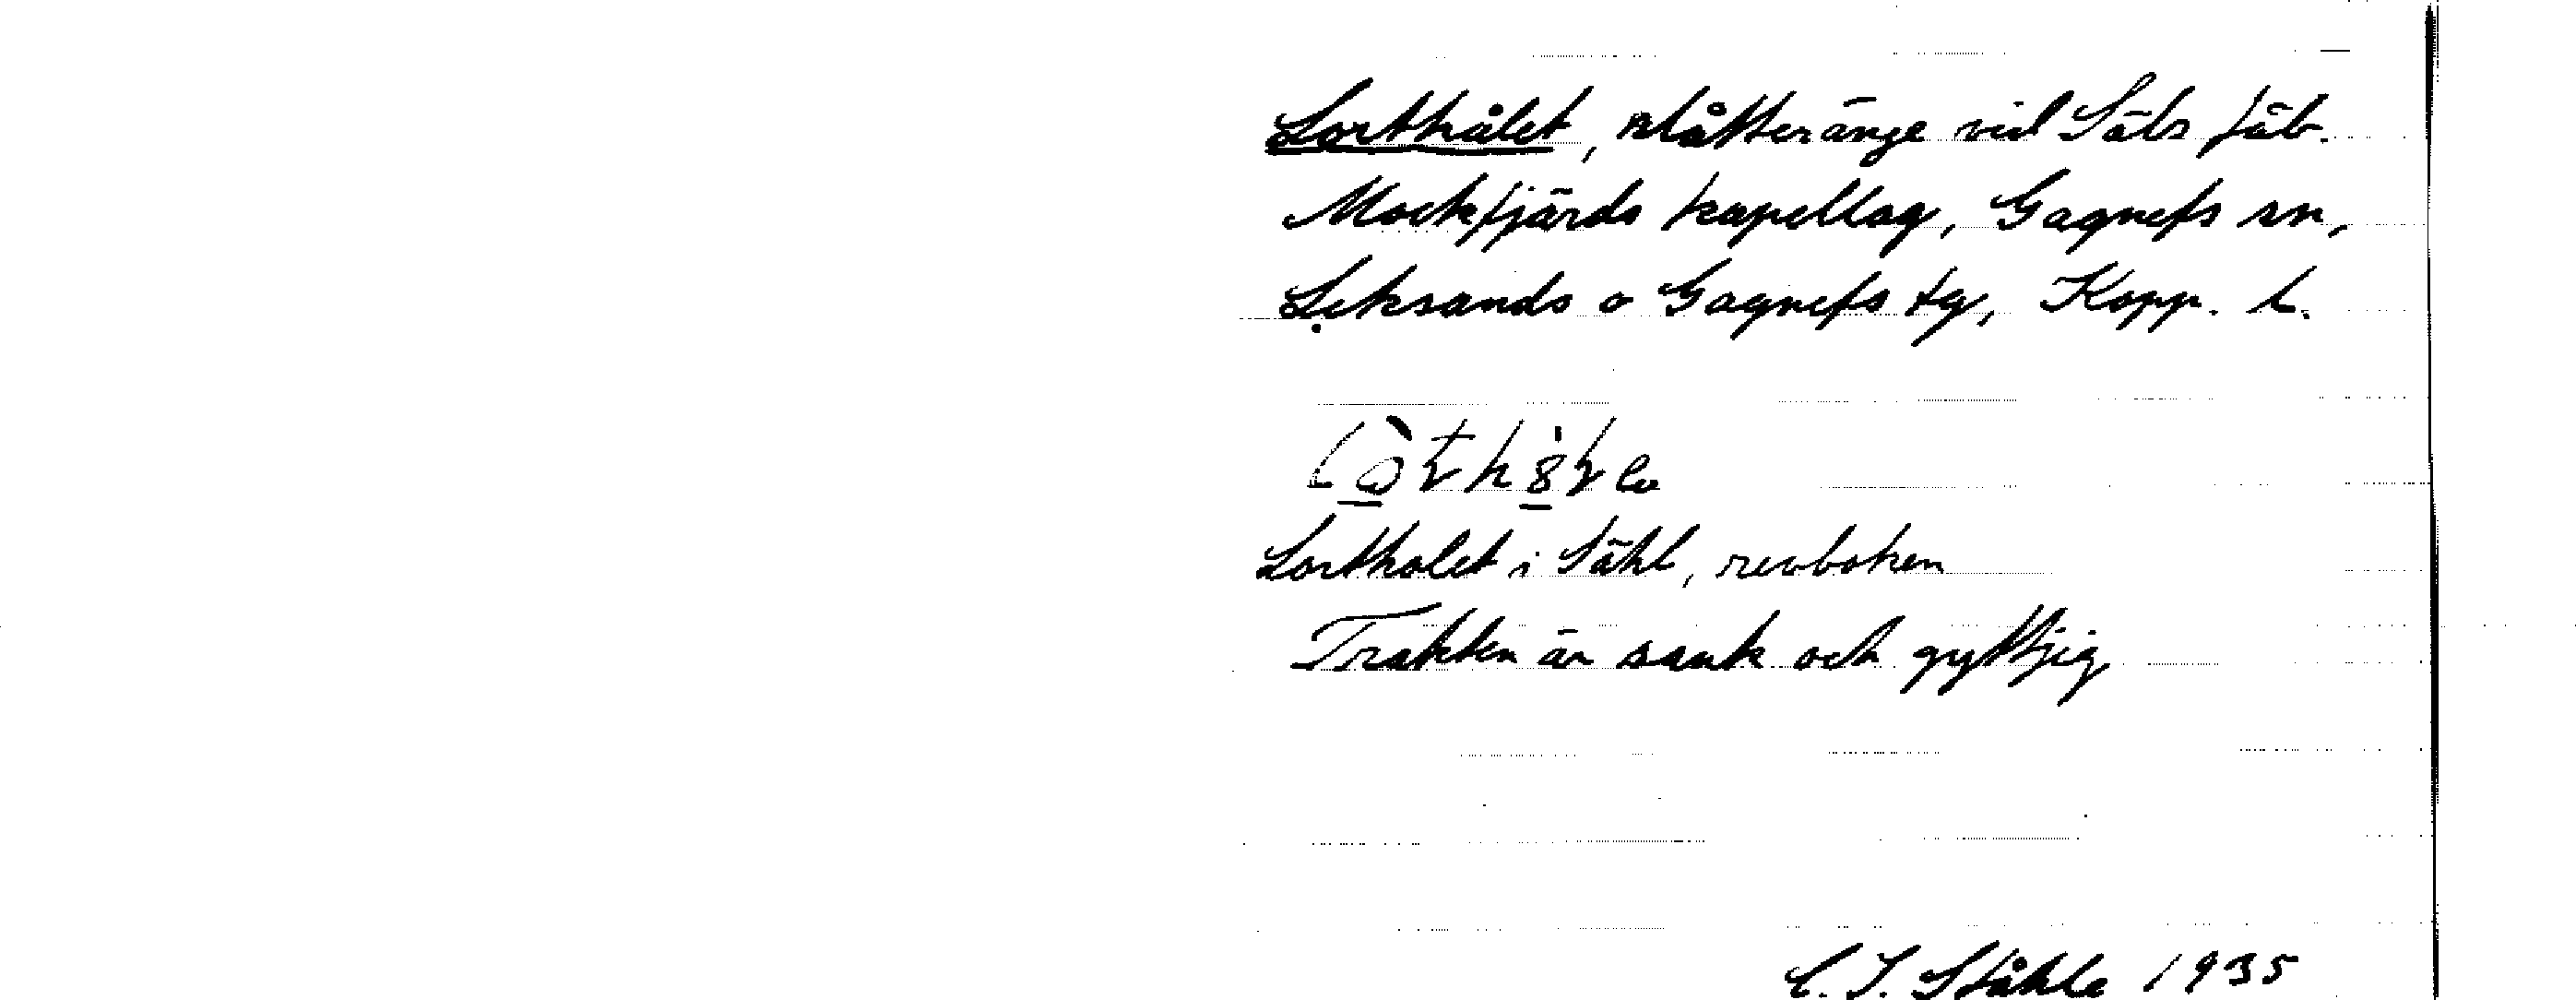 Lorthålet, slåtteränge vid Säls fäb.
Mockfjärds kapellag, Gagnefs sn,
Leksands o Gagnefs tg, Kopp. l.
Lortholet i Sähl, revboken
Trakten är sank och gyttjig
C. I. Ståhle 1935